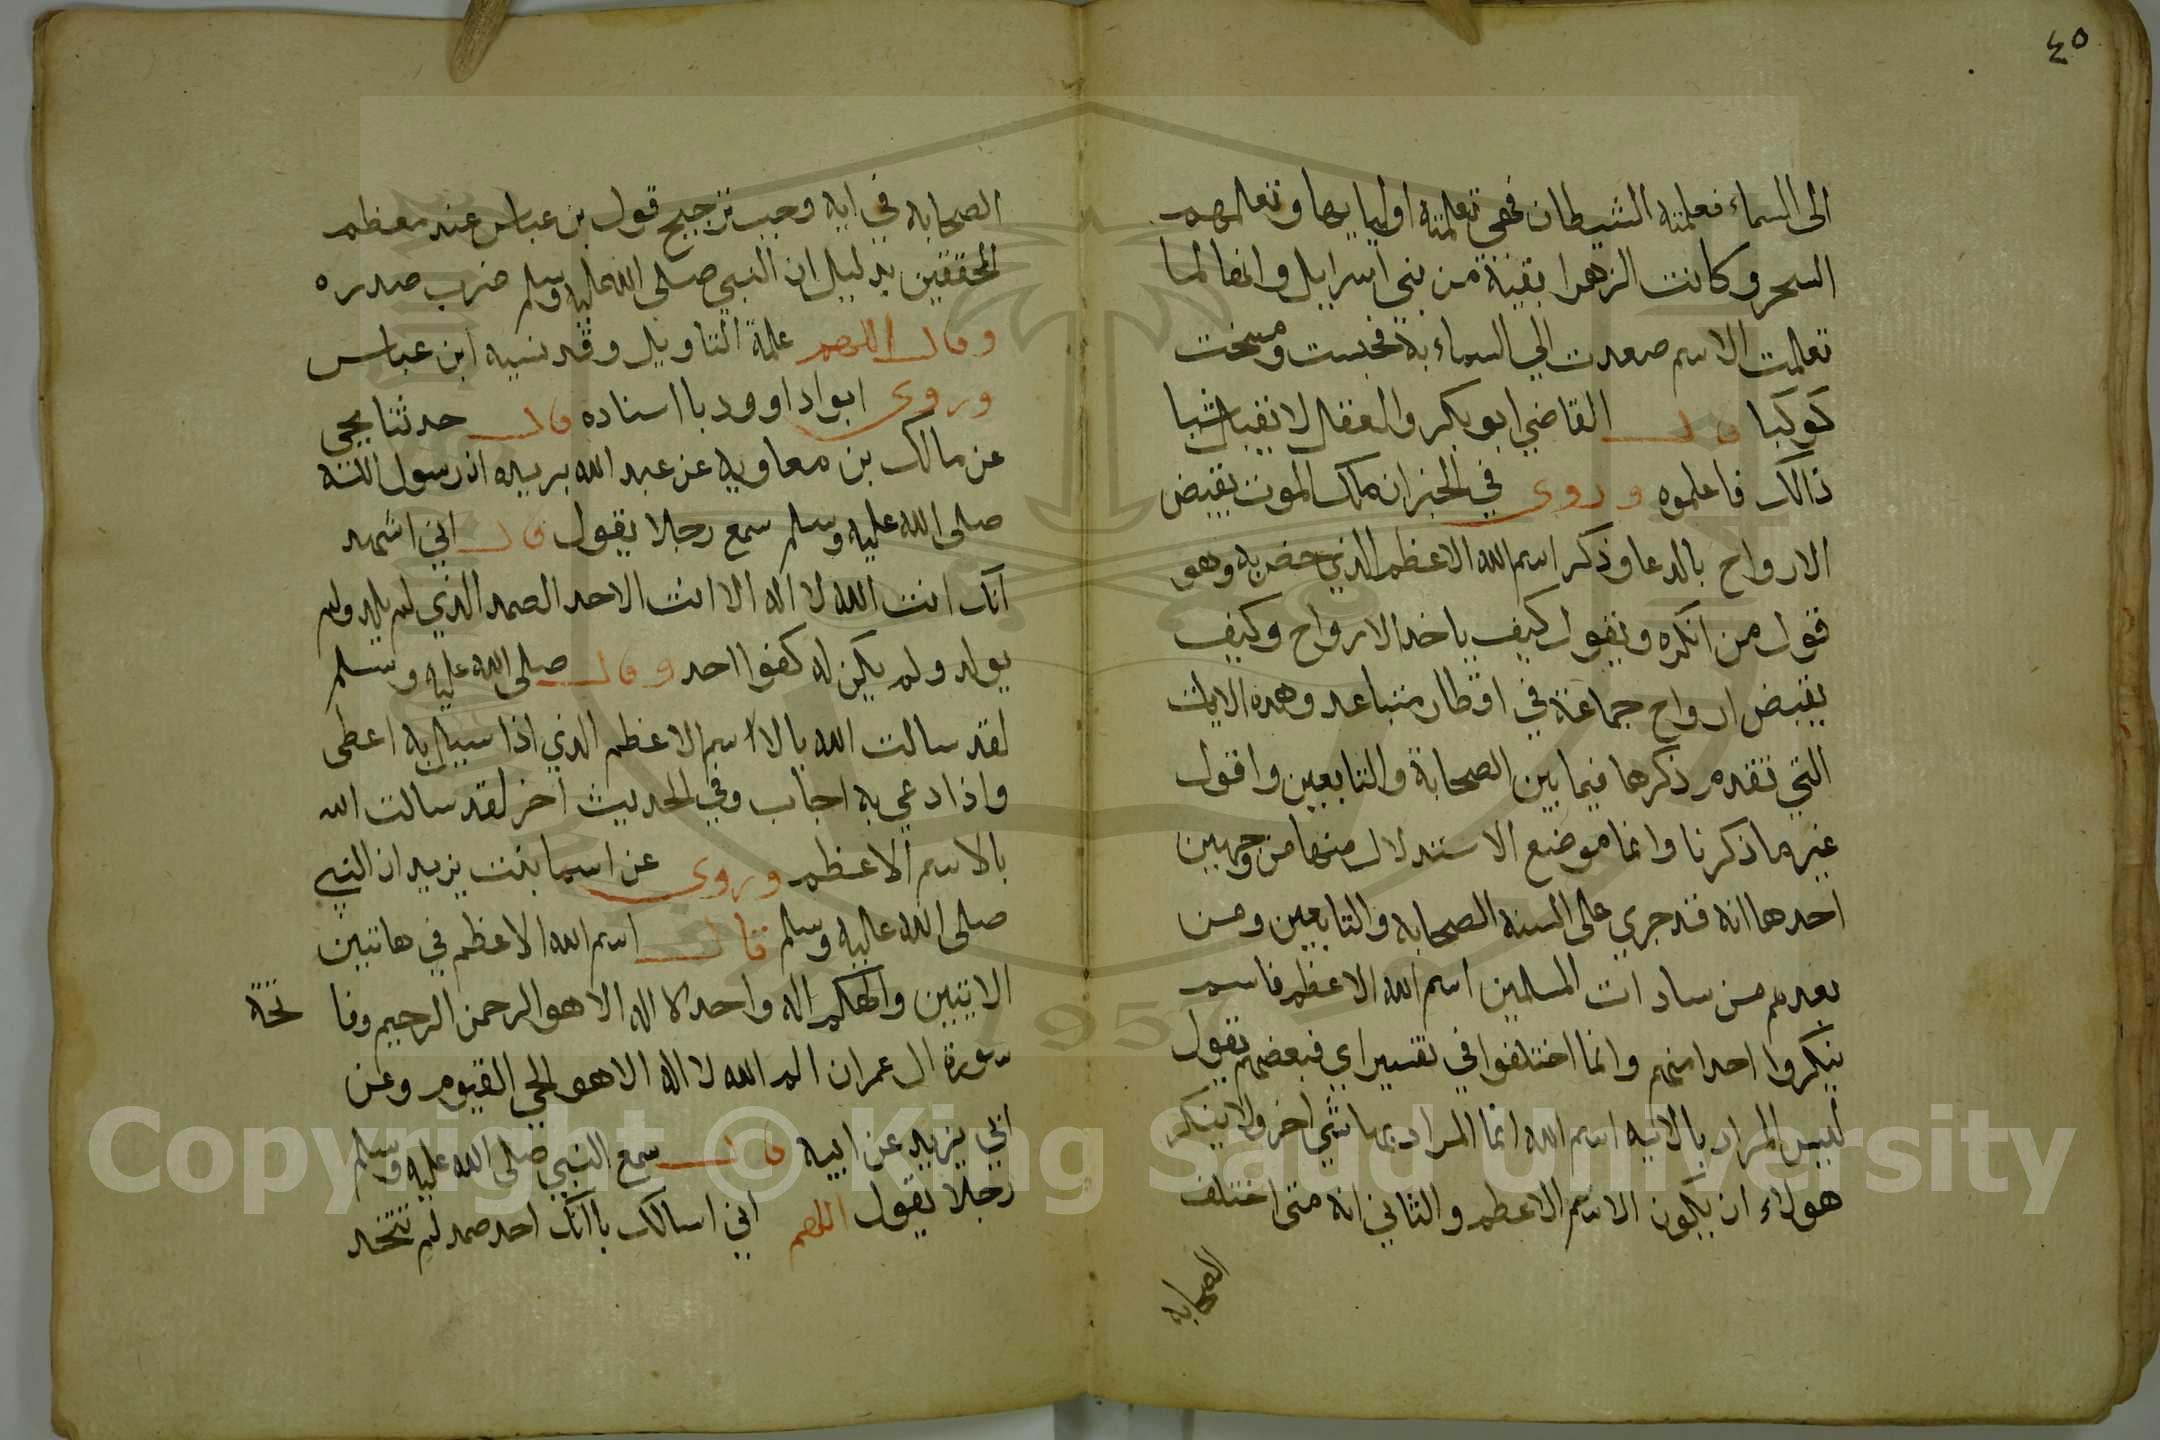 ٤٥
الى السماء فعلمته الشيطان فهى تعلمته اوليايها وتعلمهم
السحر وكانت الزهرا بقية من بني اسرايل وانها لما
تعلمت الاسم صعدت الي السماء به فحبست ومسخت
كوكبا قال القاضي ابو بكر والعقل لا تقبل شيا
ذالك فاعلموه وروى في الخبر ان ملك الموت يقبض
الارواح بالدعا وذكر اسم الله الاعظم الذي خص به وهو
قول من انكره ويقول كيف ياخد الارواح وكيف
يقبض ارواح جماعة في اقطار متباعد وهده الايات
التي تقدم ذكرها فيما بين الصحابة والتابعين واقول
غير ما ذكرنا وانما موضع الاستدلال منها من وجهين
احدها انه قد جري على السنه الصحابه والتابعين ومن
بعدهم من سادات المسلمين اسم الله الاعظم فاسم
ينكروا احدا منهم وانما اختلفوا في تفسير اي فبعضهم يقول
ليس المراد بالايه اسم الله انما المراد بها شي اخر ولا ينكر
هولاء ان يكون الاسم الاعظم والثاني انه متى اختلف
الصحابه
الصحابه في ايه وجب ترجيح قول بن عباس عند معظم
المحققين بدليل ان النبي صلى الله عليه وسلم ضرب صدره
وقال اللهم علمه التاويل وقد نسبه ابن عباس
وروى ابو اداوود بااسناده قال حدثنا يحي
عن مالك بن معاويه عن عبد الله بريده ان رسول الله
صلى الله عليه وسلم سمع رجلا يقول قال اني اشهد
انك انت الله لا اله الا انت الاحد الصمد الذي لم يلد ولم
يولد ولم يكن له كفوا احد وقال صلى الله عليه وسلم
لقد سالت الله بالااسم الاعظم الذي اذا سيل به اعطى
واذا دعي به اجاب وفي الحديث اخر لقد سالت الله
بالاسم الاعظم وروى عن اسما بنت يزيد ان النبي
صلى الله عليه وسلم قال اسم الله الاعظم في هاتين
الايتين والهكم اله واحد لا اله الا هو الرحمن الرحيم وفا تحة
سورة ال عمران الم الله لا اله الا هو الحي القيوم وعن
ابي يزيد عن ابيه قال سمع النبي صلى الله عليه وسلم
رجلا يقول اللهم اني اسالك باانك احد صمد لم تتخد
Copyright © King Saud University
1957